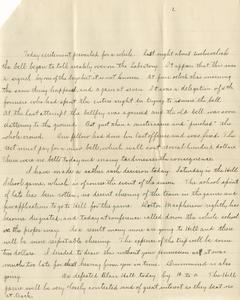 2
Today excitement prevailed for a while. Last night about twelve o'clock
the bell began to toll weakly over on the Laboratory. It appears that this was
a signal by one of the boys but it is not known. At five o'clock this morning
the same thing happened, and again at seven. It was a delegation of the
formers who had spent the entire night in trying to remove the bell.
At the last attempt the belfry was a ground and the old bell was soon
clattering to the ground. But just when a watchman and "pinched" the
whole crowd. One fellow had done his last offence and was fired. The
rest must pay for a new bell, which will cost several hundred dollars.
There was no bells today and many tardinesses the consequence.
I have made a rather rash decision today. Saturday is the Hill
School game, which is forever the event of the season. The school spirit
of late has been rotten, no decent cheering of the team in the game and
few applications to go to Hill for the game. Norton Macpherson rightly has
become disgusted, and today at conference called down the whole school
in the proper way. As a result many more are going to Hill and there
will be more respectable cheering. The expense of the trip will be some
two dollars. I decided to leave this without your permission as it was
much too late for that hearing from you in time. Drummond is also
going. We defeated Blair Hall today by 10 to 0. The Hill
game will be very closely contested and of great interest as they beat us
at track.